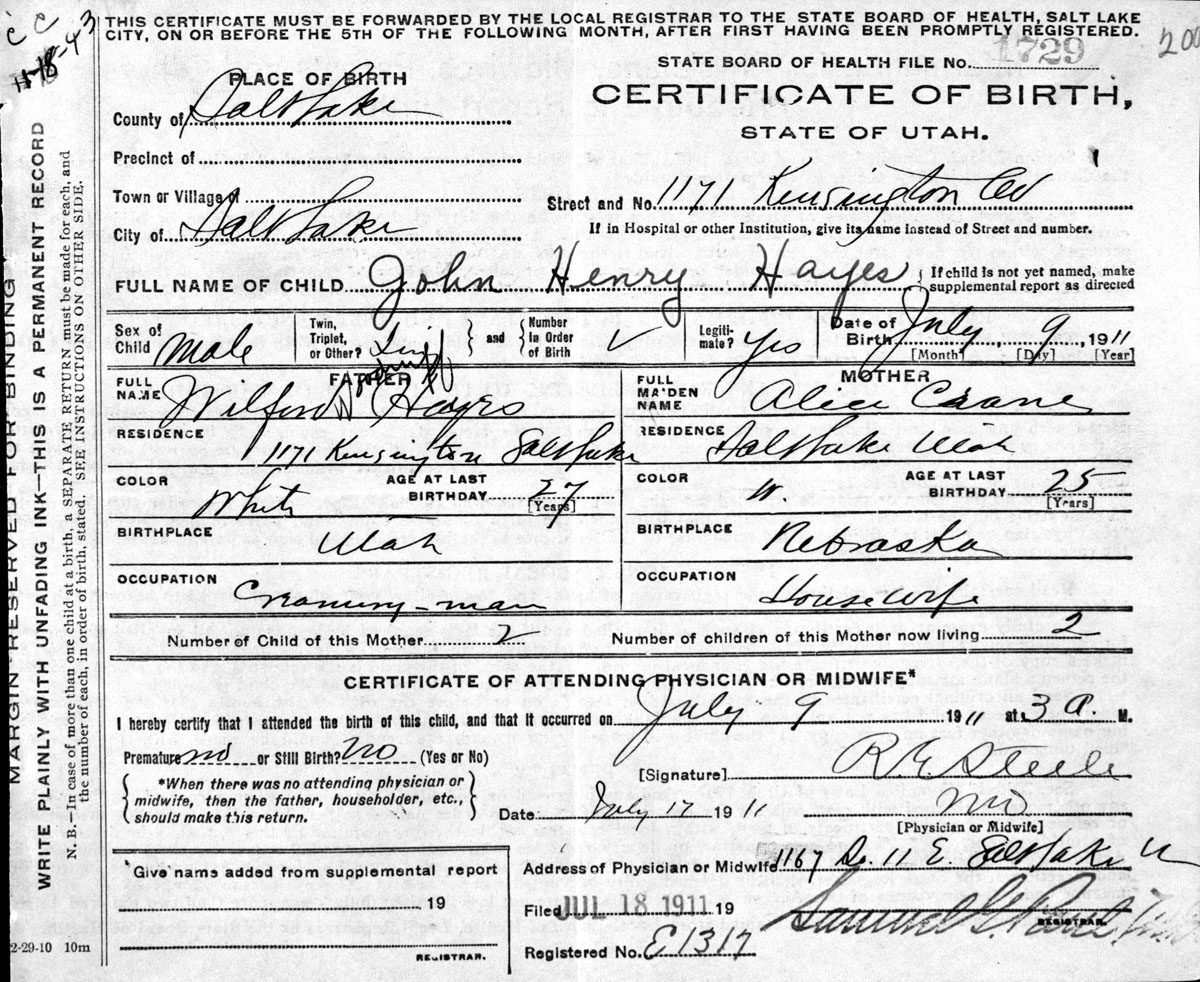 THIS CERTIFICATE MUST BE FORWARDED BY THE LOCAL REGISTRAR TO THE STATE BOARD OF HEALTH, SALT LAKE
CITY, ON OR BEFORE THE 5TH OF THE FOLLOWING MONTH, AFTER FIRST HAVING BEEN PROMPTLY REGISTERED.
STATE BOARD OF HEALTH FILE No. 1729
200
CC
11-18-43
PLACE OF BIRTH
CERTIFICATE OF BIRTH,
STATE OF UTAH.
County of Salt Lake
Precinct of
Town or Village of
Street and No. 1171 Kensington Av
City of Salt Lake
If in Hospital or other Institution, give its name instead of Street and number.
FULL NAME OF CHILD John Henry Hayes
If child is not yet named, make
supplemental report as directed
Sex of Child Male
Twin, Triplet, or Other?
and
Number in Order of Birth
Legiti-mate? Yes
Date of Birth July 9, 1911
[Month] [Day] [Year]
FATHER
MOTHER
FULL NAME Wilford Hayes
FULL MAIDEN NAME Alice Crane
RESIDENCE 1171 Kensington Salt Lake
RESIDENCE Salt Lake Utah
COLOR White AGE AT LAST BIRTHDAY 27 [Years]
COLOR W. AGE AT LAST BIRTHDAY 25 [Years]
BIRTHPLACE Utah
BIRTHPLACE Nebraska
OCCUPATION Creamery-man
OCCUPATION Housewife
Number of Child of this Mother 2 Number of children of this Mother now living 2
CERTIFICATE OF ATTENDING PHYSICIAN OR MIDWIFE*
I hereby certify that I attended the birth of this child, and that it occurred on July 9 1911 at 3 a. M.
Premature no or Still Birth? No (Yes or No)
*When there was no attending physician or
midwife, then the father, householder, etc.,
should make this return.
[Signature] R.E. Steele
Date July 17 1911 MD
[Physician or Midwife]
Give name added from supplemental report
19
REGISTRAR.
Address of Physician or Midwife 1167 So. 11 E. Salt Lake U
Filed JUL 18 1911 19
Samuel G. REGISTRAR.
Registered No. E1317
2-29-10 10m
MARGIN RESERVED FOR BINDING
WRITE PLAINLY WITH UNFADING INK—THIS IS A PERMANENT RECORD
N. B.—In case of more than one child at a birth, a SEPARATE RETURN must be made for each, and
the number of each, in order of birth, stated. SEE INSTRUCTIONS ON OTHER SIDE.